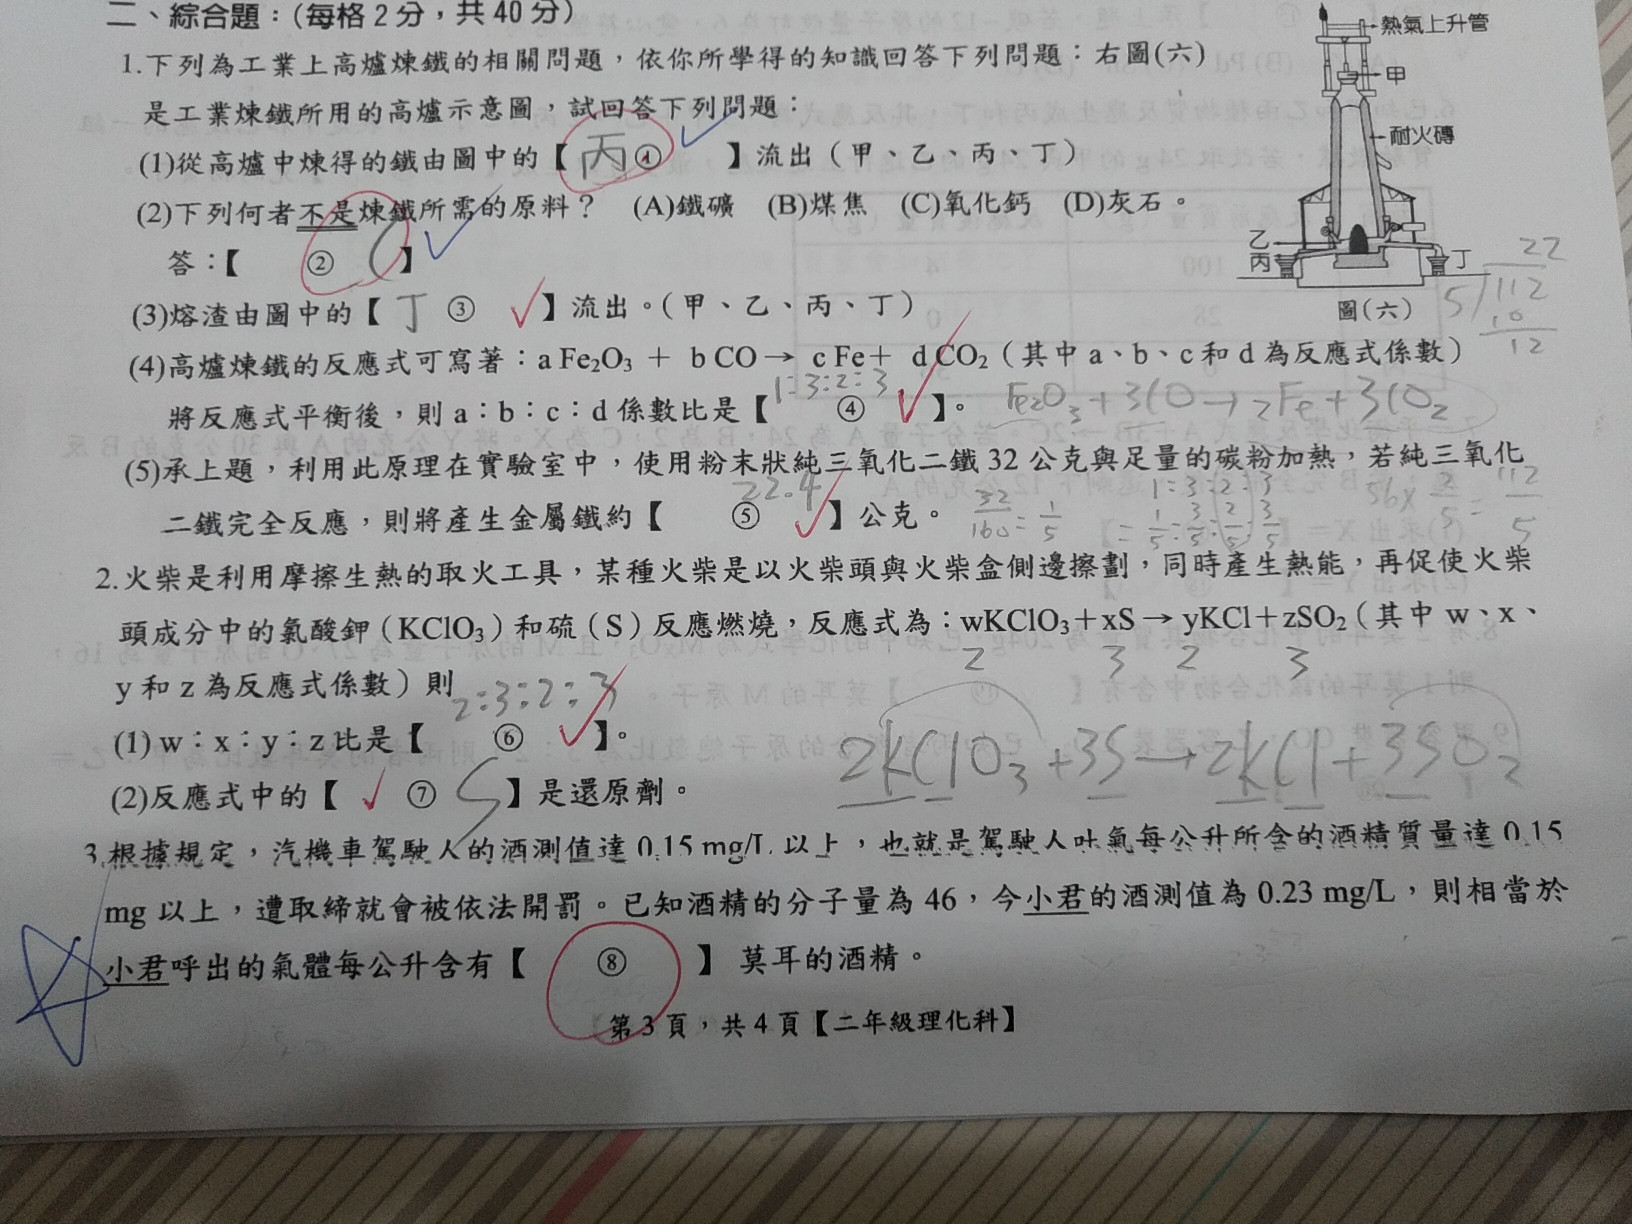 二、綜合題：(每格2分，共40分)
1.下列為工業上高爐煉鐵的相關問題，依你所學得的知識回答下列問題：右圖(六)
是工業煉鐵所用的高爐示意圖，試回答下列問題：
(1)從高爐中煉得的鐵由圖中的【丙 ① 】流出（甲、乙、丙、丁）
(2)下列何者不是煉鐵所需的原料？ (A)鐵礦 (B)煤焦 (C)氧化鈣 (D)灰石。
答：【 ② C 】
(3)熔渣由圖中的【丁 ③ 】流出。（甲、乙、丙、丁）
(4)高爐煉鐵的反應式可寫著：a Fe₂O₃ ＋ b CO → c Fe＋ d CO₂（其中 a、b、c 和 d 為反應式係數）
將反應式平衡後，則 a：b：c：d 係數比是【1:3:2:3 ④ 】。 Fe₂O₃+3CO→2Fe+3CO₂
(5)承上題，利用此原理在實驗室中，使用粉末狀純三氧化二鐵 32 公克與足量的碳粉加熱，若純三氧化
二鐵完全反應，則將產生金屬鐵約【22.4 ⑤ 】公克。 32/160=1/5
1:3:2:3
=1/5:3/5:2/5:3/5
56×2/5=112/5
熱氣上升管
甲
耐火磚
乙
丙
丁
圖(六)
22
5/112
10
12
2.火柴是利用摩擦生熱的取火工具，某種火柴是以火柴頭與火柴盒側邊擦劃，同時產生熱能，再促使火柴
頭成分中的氯酸鉀（KClO₃）和硫（S）反應燃燒，反應式為：wKClO₃＋xS → yKCl＋zSO₂（其中 w、x、
2 3 2 3
y 和 z 為反應式係數）則
(1) w：x：y：z 比是【2:3:2:3 ⑥ 】。
2KClO₃+3S→2KCl+3SO₂
(2)反應式中的【 ⑦ S 】是還原劑。
3.根據規定，汽機車駕駛人的酒測值達 0.15 mg/L 以上，也就是駕駛人吐氣每公升所含的酒精質量達 0.15
mg 以上，遭取締就會被依法開罰。已知酒精的分子量為 46，今小君的酒測值為 0.23 mg/L，則相當於
小君呼出的氣體每公升含有【 ⑧ 】 莫耳的酒精。
第 3 頁，共 4 頁【二年級理化科】